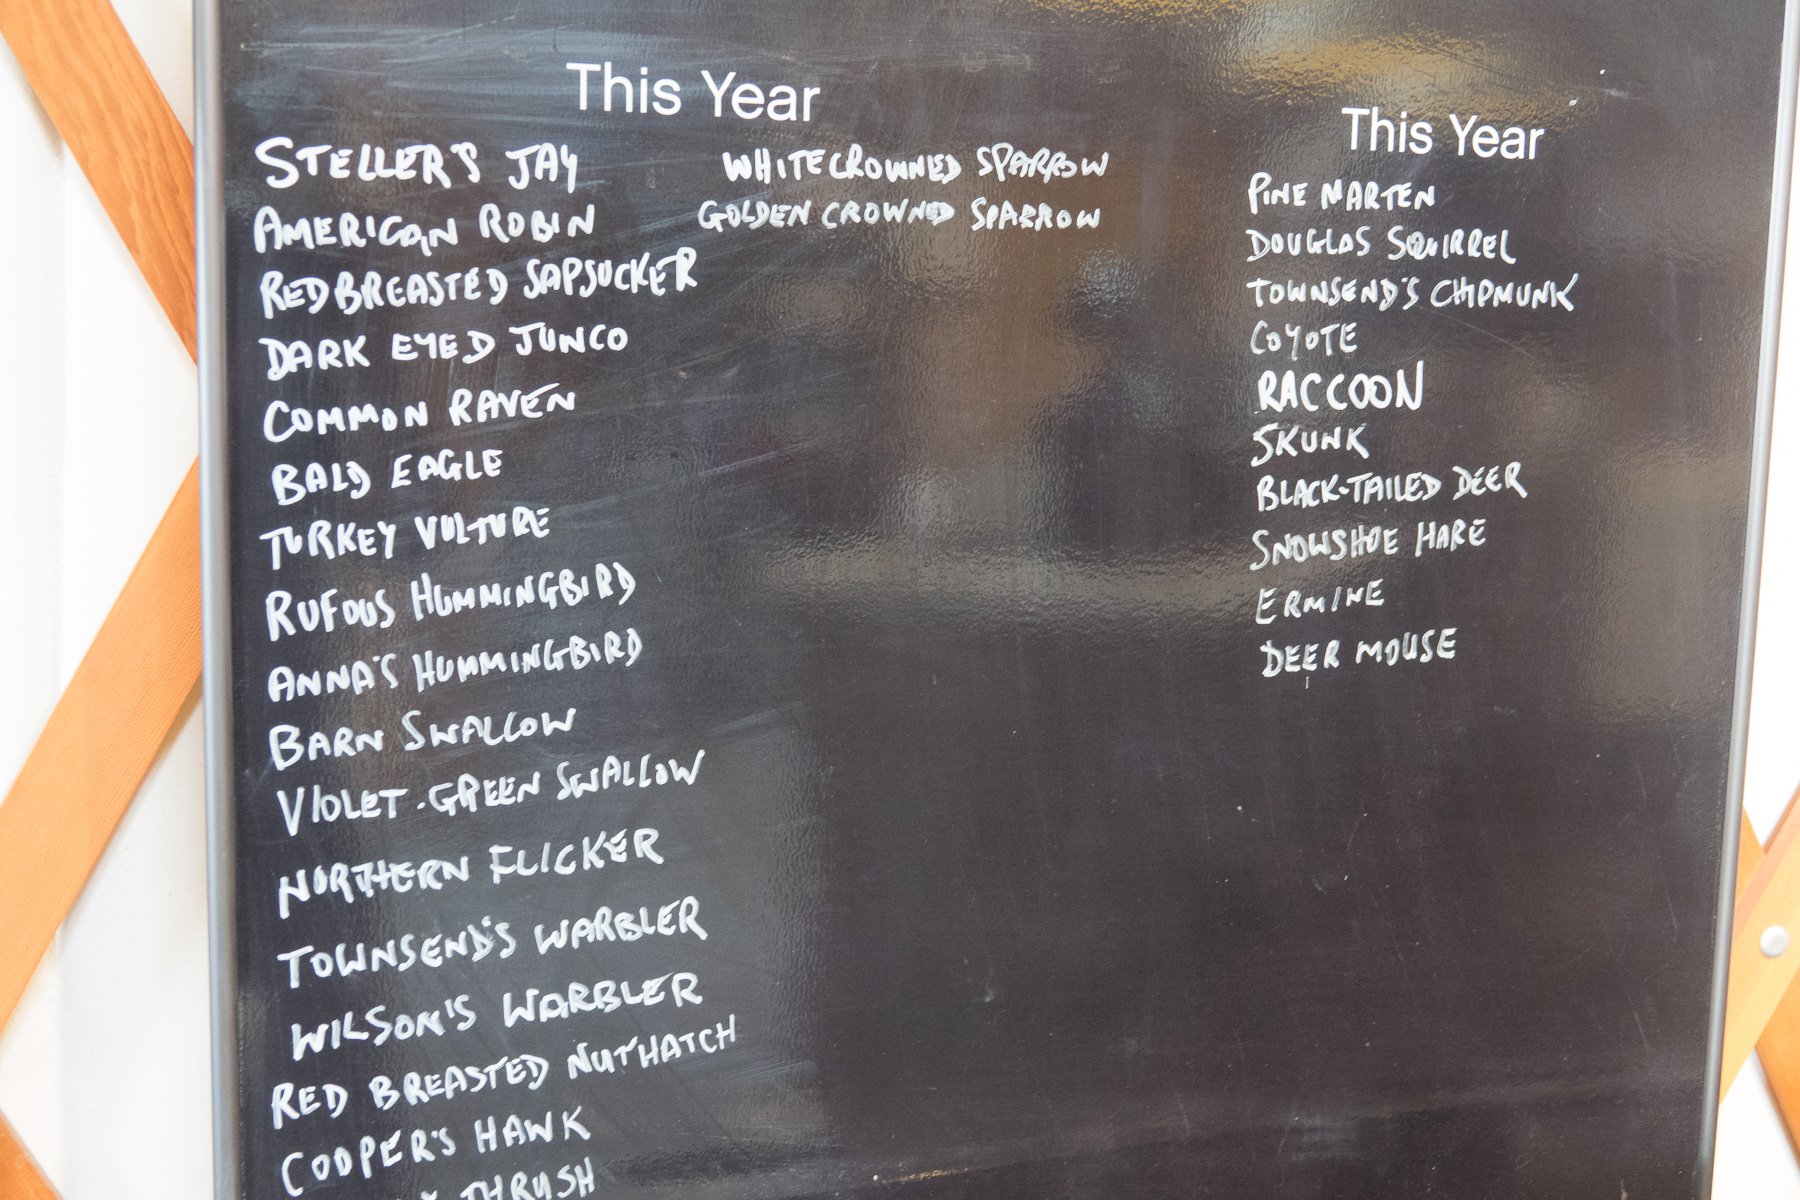 This Year
STELLER'S JAY
AMERICAN ROBIN
RED BREASTED SAPSUCKER
DARK EYED JUNCO
COMMON RAVEN
BALD EAGLE
TURKEY VULTURE
RUFOUS HUMMINGBIRD
ANNA'S HUMMINGBIRD
BARN SWALLOW
VIOLET-GREEN SWALLOW
NORTHERN FLICKER
TOWNSEND'S WARBLER
WILSON'S WARBLER
RED BREASTED NUTHATCH
COOPER'S HAWK
THRUSH
WHITE CROWNED SPARROW
GOLDEN CROWNED SPARROW
This Year
PINE MARTEN
DOUGLAS SQUIRREL
TOWNSEND'S CHIPMUNK
COYOTE
RACCOON
SKUNK
BLACK-TAILED DEER
SNOWSHOE HARE
ERMINE
DEER MOUSE